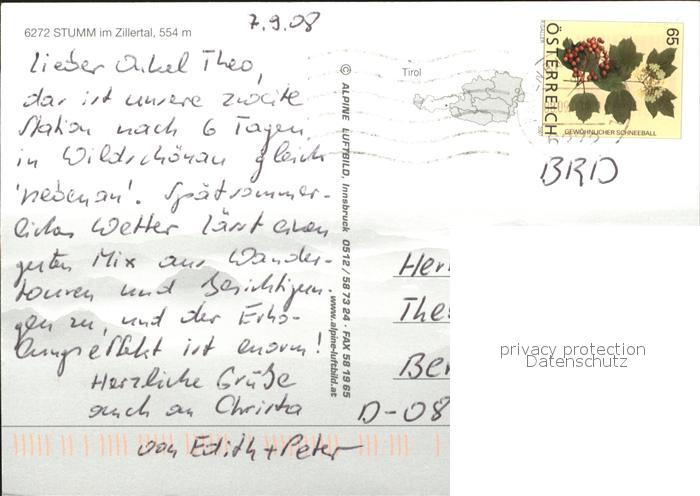 7.9.08
6272 STUMM im Zillertal, 554 m
Lieber Onkel Theo,
das ist unsere zweite
Station nach 6 Tagen
in Wildschönau gleich
'nebenan'. Spätsommer-
liches Wetter lässt einen
guten Mix aus Wander-
touren und Besichtigun-
gen zu, und der Erho-
lungseffekt ist enorm!
Herzliche Grüße
auch an Christa
von Edith + Peter
© ALPINE LUFTBILD, Innsbruck 0512 / 58 73 24 · FAX 58 19 65
www.alpine-luftbild.at
Tirol
ÖSTERREICH
65
GEWÖHNLICHER SCHNEEBALL
BRD
Her
The
Ber
D-08
privacy protection
Datenschutz